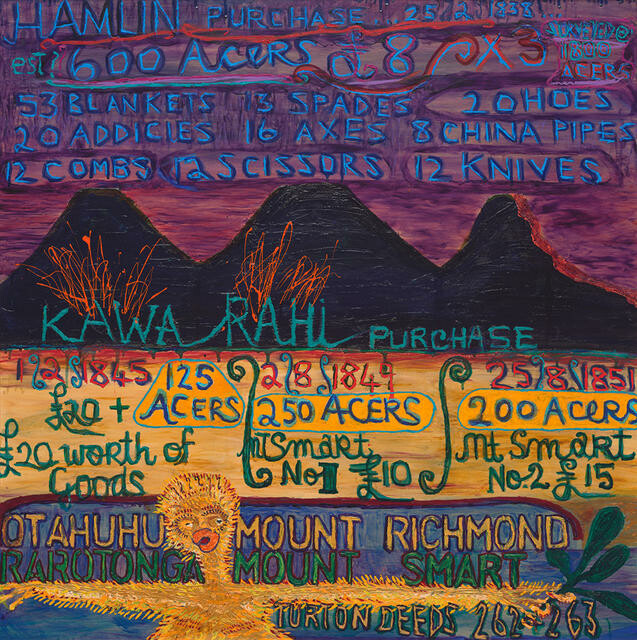 HAMLIN PURCHASE... 25/2/1838...
est? 600 ACERS at 8 PX 3
1800
ACERS
53 BLANKETS 13 SPADES 20 HOES
20 ADDICIES 16 AXES 8 CHINA PIPES
12 COMBS 12 SCISSORS 12 KNIVES
KAWA RAHI PURCHASE
1/2/1845 125 2/8/1849 25/8/1851
£20 + ACERS 250 ACERS 200 ACERS
£20 worth of Mt Smart Mt Smart
Goods No II £10 No.2 £15
OTAHUHU MOUNT RICHMOND
RAROTONGA MOUNT SMART
TURTON DEEDS 262-263